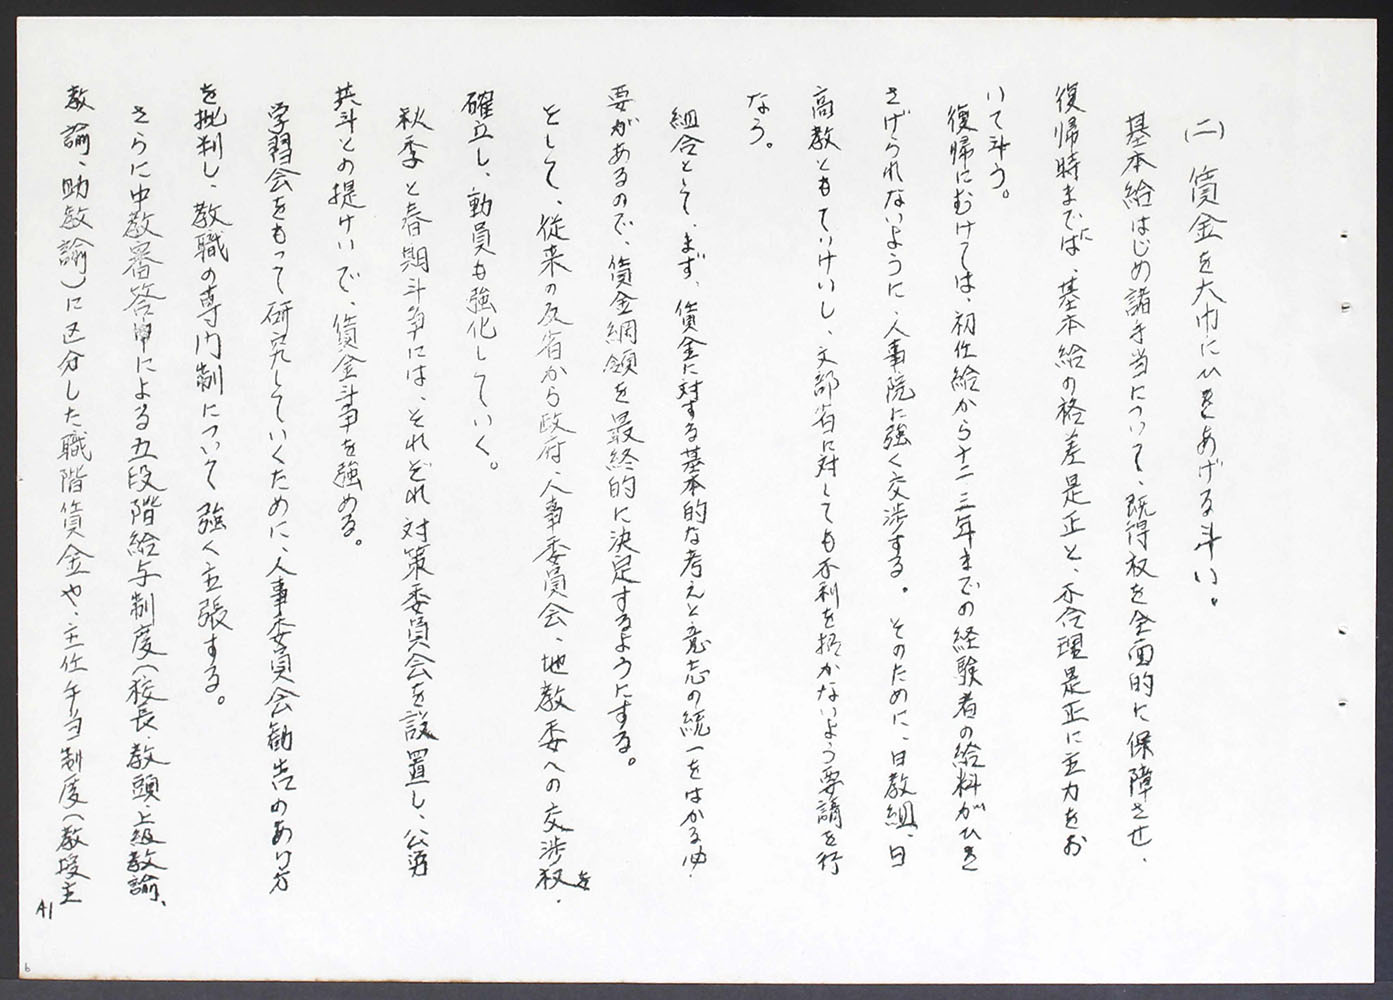 (二) 賃金を大巾にひきあげる斗い。
基本給はじめ諸手当について、既得权を全面的に保障させ、
復帰時までには、基本給の格差是正と、不合理是正に主力をお
いて斗う。
復帰にむけては、初任給から十二、三年までの経験者の給料がひき
さげられないように、人事院に強く交渉する。そのために、日教組、日
高教ともていけいし、文部省に対しても不利を招かないよう要請を行
なう。
組合として、まず、賃金に対する基本的な考えと意志の統一をはかる必
要があるので、賃金綱領を最終的に決定するようにする。
として、従来の反省から政府、人事委員会、地教委への交渉权を
確立し、動員も強化していく。
秋季と春期斗争には、それぞれ対策委員会を設置し、公労
共斗との提けいで、賃金斗争を強める。
学習会をもって研究していくために、人事委員会勧告のあり方
を批判し、教職の専门制について強く主張する。
さらに中教審答申による五段階給与制度(校長、教頭、上級教諭、
教諭、助教諭)に区分した職階賃金や、主任手当制度(教授主
41
6